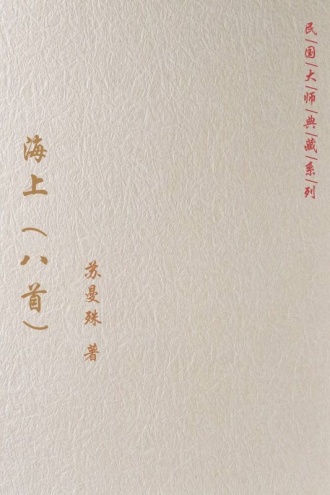 民|国|大|师|典|藏|系|列
海上（八首）
苏曼殊 著